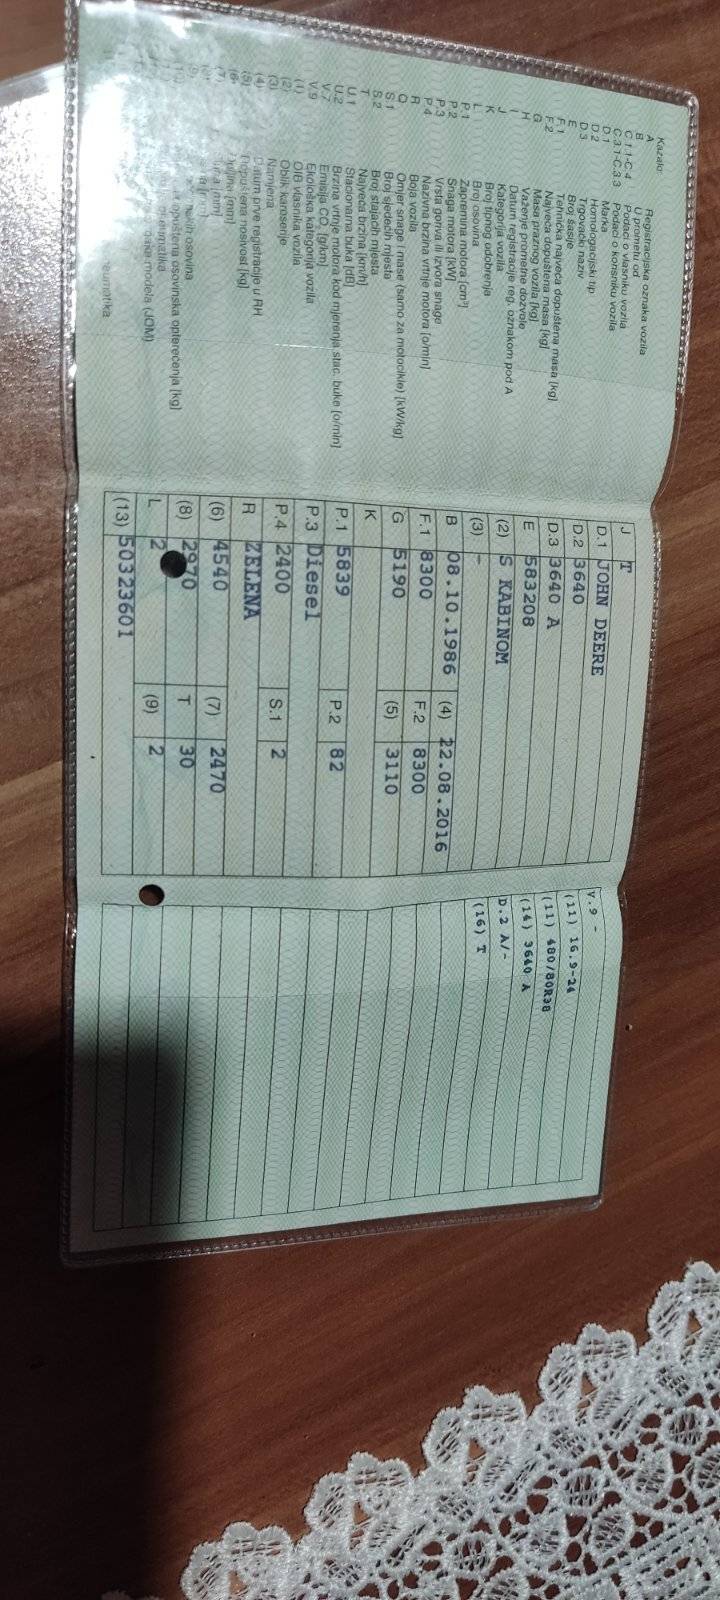 Kazalo:
A Registracijska oznaka vozila
B U prometu od
C.1.1-C.4 Podaci o vlasniku vozila
C.3.1-C.3.3 Podaci o korisniku vozila
D.1 Marka
D.2 Homologacijski tip
D.3 Trgovački naziv
E Broj šasije
F.1 Tehnička najveća dopuštena masa [kg]
F.2 Najveća dopuštena masa [kg]
G Masa praznog vozila [kg]
H Važenje prometne dozvole
I Datum registracije reg. oznakom pod A
J Kategorija vozila
K Broj tipnog odobrenja
L Broj osovina
P.1 Zapremina motora [cm³]
P.2 Snaga motora [kW]
P.3 Vrsta goriva ili izvora snage
P.4 Nazivna brzina vrtnje motora [o/min]
R Boja vozila
Q Omjer snage i mase (samo za motocikle) [kW/kg]
S.1 Broj sjedećih mjesta
S.2 Broj stajaćih mjesta
T Najveća brzina [km/h]
U.1 Stacionarna buka [dB]
U.2 Brzina vrtnje motora kod mjerenja stac. buke [o/min]
V.7 Emisija CO2 [g/km]
V.9 Ekološka kategorija vozila
(1) OIB vlasnika vozila
(2) Oblik karoserije
(3) Namjena
(4) Datum prve registracije u RH
(5) Dopuštena nosivost [kg]
(6) [mm]
(7) [mm]
osovina
dopuštena osovinska opterećenja [kg]
pneumatika
modela (JOM)
pneumatika
J T
D.1 JOHN DEERE
D.2 3640
D.3 3640 A
E 583208
(2) S KABINOM
(3) -
B 08.10.1986 (4) 22.08.2016
F.1 8300 F.2 8300
G 5190 (5) 3110
K
P.1 5839 P.2 82
P.3 Diesel
P.4 2400 S.1 2
R ZELENA
(6) 4540 (7) 2470
(8) 2 70 T 30
L 2 (9) 2
(13) 50323601
V.9 -
(11) 16.9-24
(11) 480/80R38
(14) 3640 A
D.2 A/-
(16) T